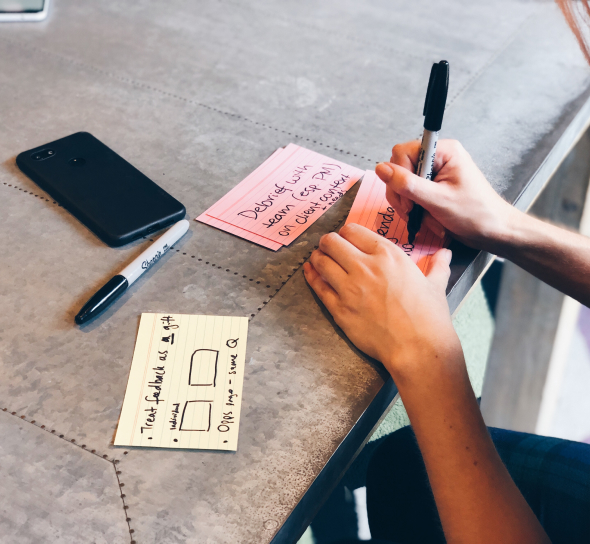 Debrief with
team (esp DM)
on client content
Sharpie
• Treat feedback as a gift
• individual
• Opps
- same Q